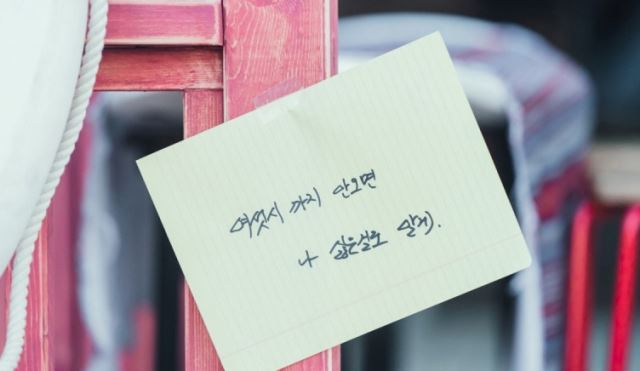 여섯시 까지 안오면
나 싫은걸로 알게.